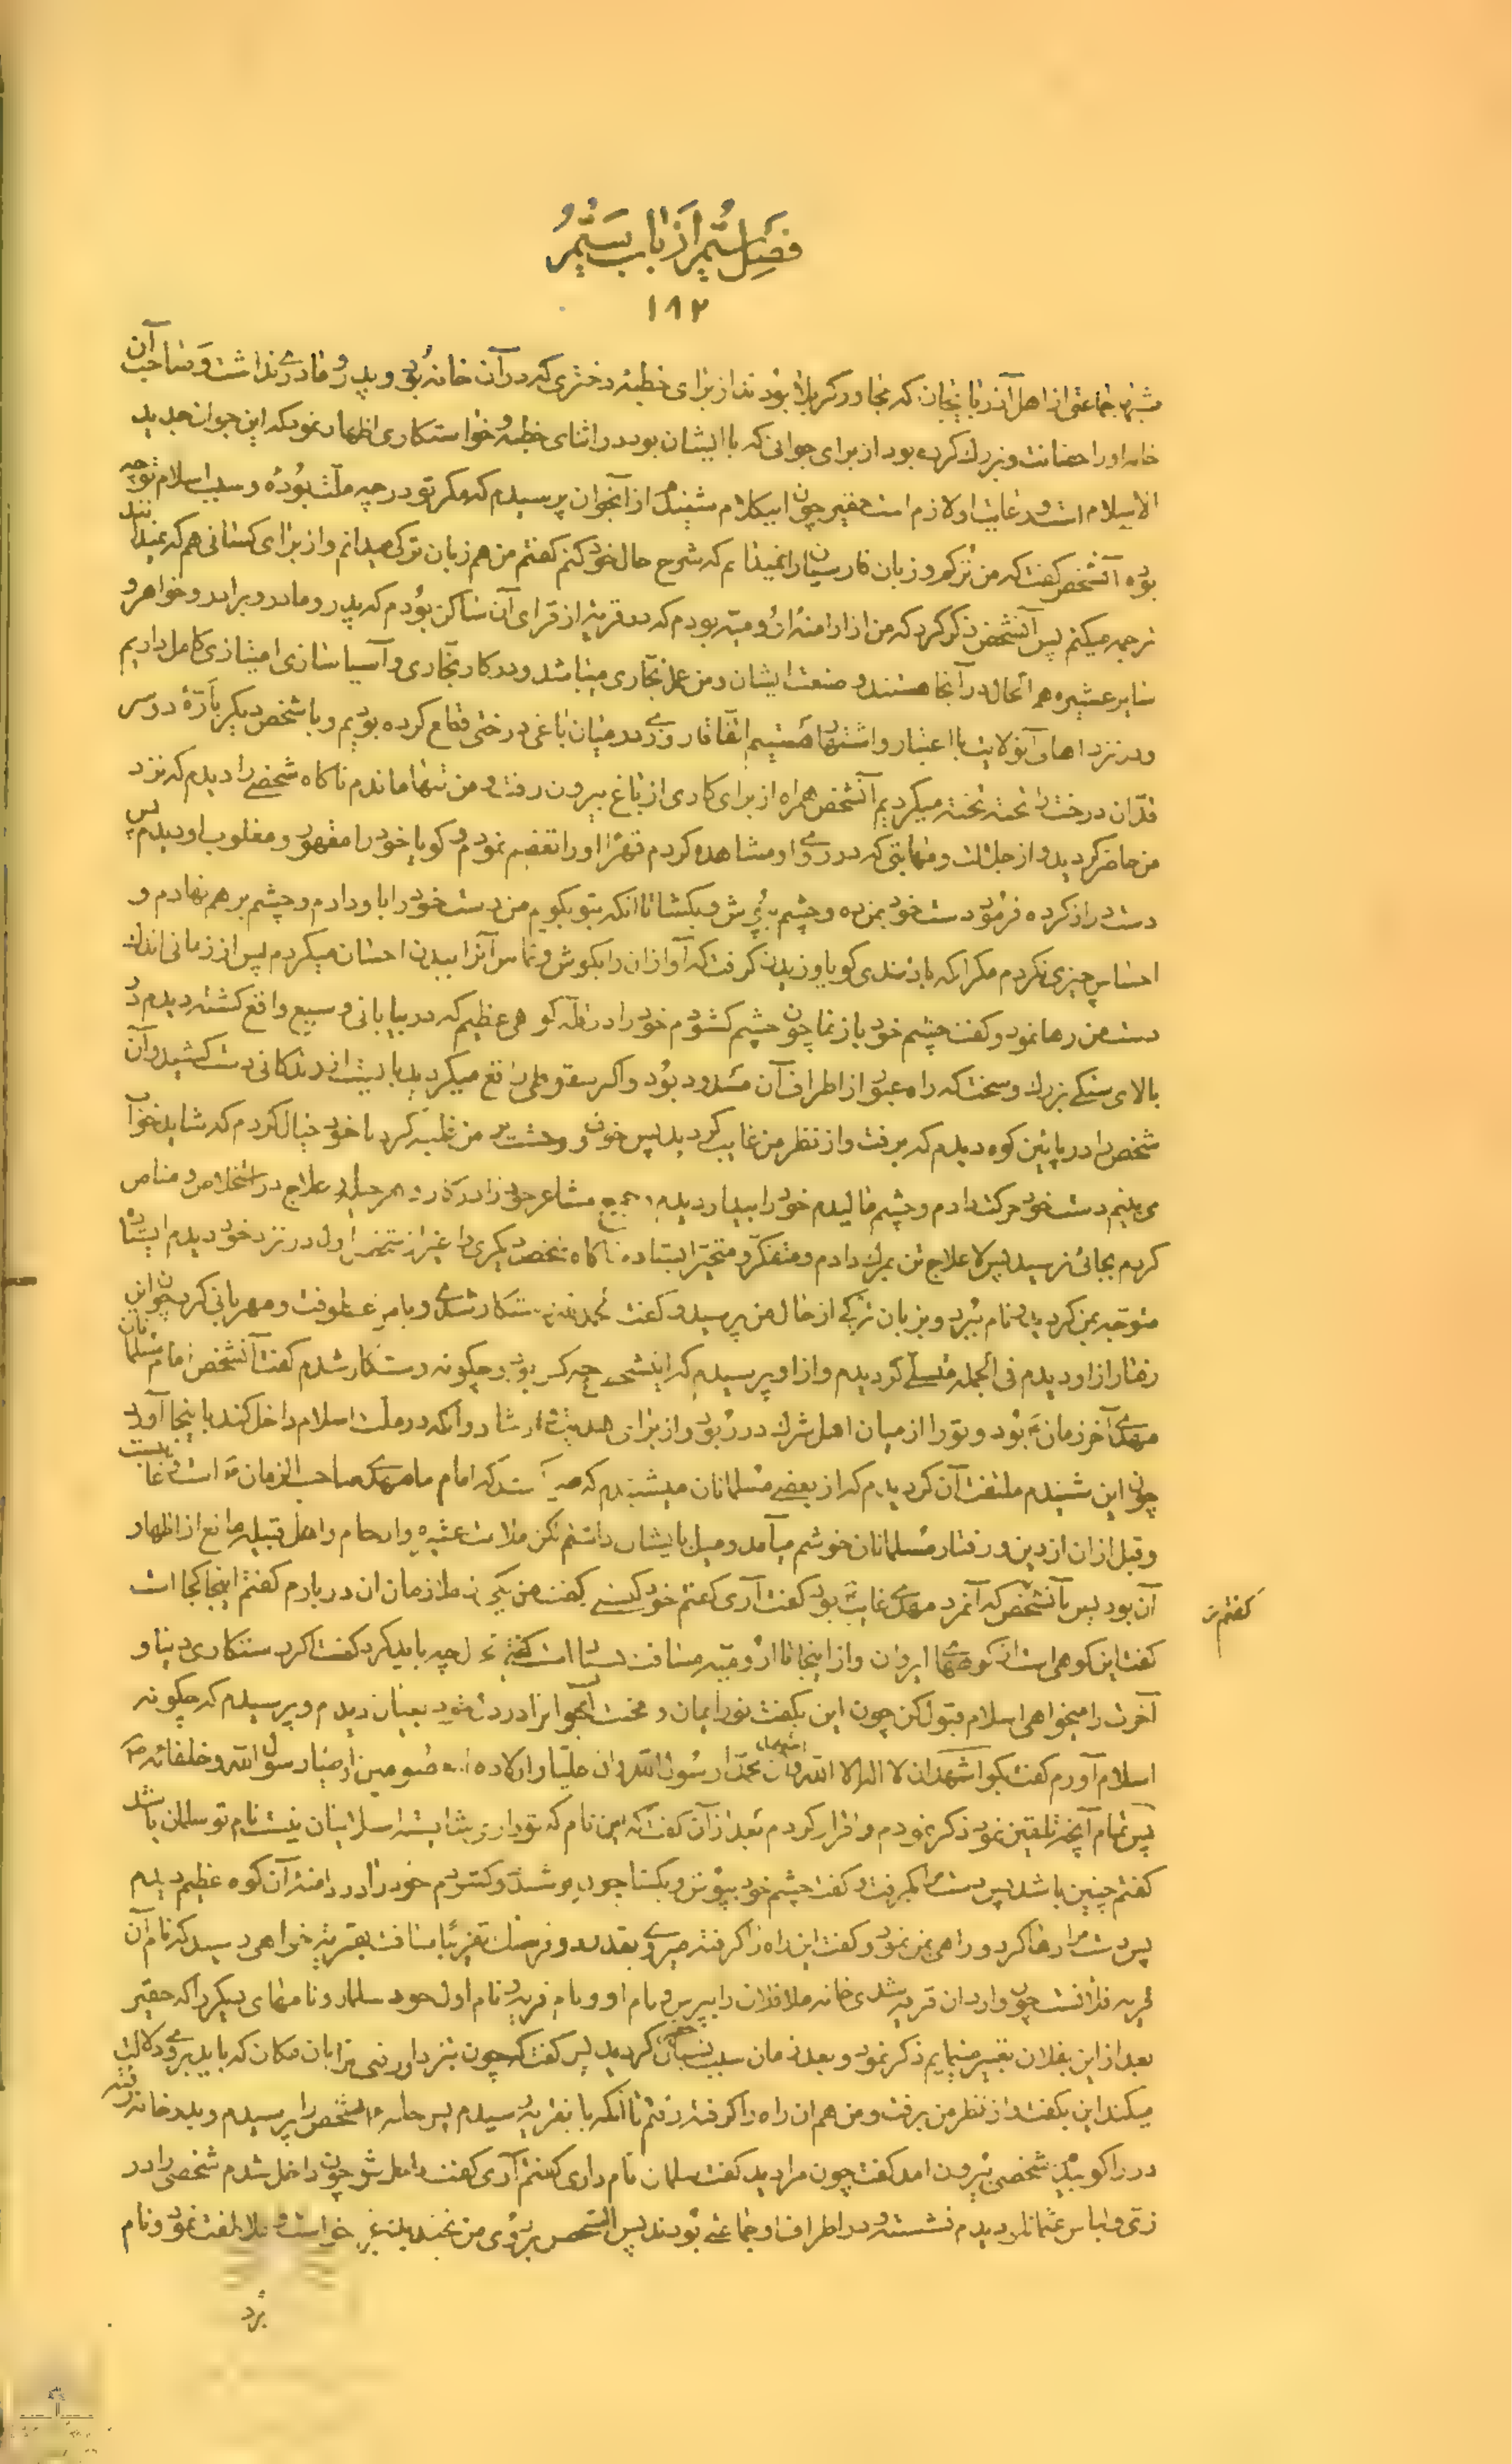 فصل ششم از باب ششم
۱۹۲
شبها جماعتی از اهل آذربایجان که مجاور کربلا بودند از برای خطبهٔ دختری که در آن خانه بود و پدر و مادری نداشت و صاحب آن
خانه او را حضانت و بزرك کرده بود از برای جوانی که با ایشان بود در اثنای خطبه و خواستکاری اظهار نمود که این جوان جدید
الاسلام است و رعایت او لازم است حقیر چون این کلام شنیدم از آنجوان پرسیدم که مکر تو در چه ملت بودهٔ و سبب اسلام تو چه
بوده آنشخص کفت که من ترکم و زبان فارسیان را نمیدانم که شرح حال خود کنم کفتم من هم زبان ترکی میدانم و از برای کسانی هم که نمیدانند
ترجمه میکنم پس آنشخص ذکر کرد که من از ارامنهٔ ارومیه بودم که در قریهٔ از قرای آن ساکن بودم که پدر و مادر و برادر و خواهر و
سایر عشیره هم الحال در آنجا هستند و صنعت ایشان و من عمل نجاری میباشد و در کار نجاری و آسیا سازی امتیازی کامل داریم
و در نزد اهل آنولایت با اعتبار و اشتهار هستیم اتفاقا روزی در میان باغی درختی قطع کرده بودیم و با شخص دیکر با ارهٔ دو سر
آن درخت را تخته تخته میکردیم آنشخص همراه از برای کاری از باغ بیرون رفت و من تنها ماندم ناکاه شخصی را دیدم که نزد
من حاضر کردید و از جلالت و مهابتی که در روی او مشاهده کردم قهرا او را تعظیم نمودم و کویا خود را مقهور و مغلوب او دیدم پس
دست دراز کرده فرمود دست خود بمن ده و چشم بپوش و بکشا تا آنکه بتو بکویم من دست خود را باو دادم و چشم بر هم نهادم و
احساس چیزی نکردم مکر آنکه باد تندی کویا وزیدن کرفت که آواز آن را بکوش و تماس آنرا ببدن احساس میکردم پس از زمانی اندك
دست من رها نمود و کفت چشم خود باز نما چون چشم کشودم خود را در قلهٔ کوهی عظیم که در بیابانی وسیع واقع کشته دیدم در
بالای سنکی بزرك و سخت که راه عبور از اطراف آن مسدود بود و اکر سقوطی واقع میکردید بایست از زندکانی دست کشید و آن
شخص را در پائین کوه دیدم که برفت و از نظر من غایب کردید پس خوف و وحشت بر من غلبه کرد با خود خیال کردم که شاید خواب
می بینم دست خود حرکت دادم و چشم مالیدم خود را بیدار دیدم و جمیع مشاعر خود را در کار و هر حیله و علاج در استخلاص و مناص
کردم بجائی نرسید پس لا علاج تن بمرك دادم و متفکر و متحیر ایستاده ناکاه شخص دیکری را غیر از شخص اول در نزد خود دیدم ایستاده
متوجه بمن کردید و نام برد و بزبان ترکی از حال من پرسید و کفت بحمد الله رستکار شدی و با من عطوفت و مهربانی کرد چون این
رفتار از او دیدم فی الجمله متسلی کردیدم و از او پرسیدم که اینشخص چه کس بود و چکونه رستکار شدم کفت آنشخص امام مسلمانان
مهدی آخر زمان بود و تو را از میان اهل شرك در ربود و از برای هدایت و ارشاد و آنکه در ملت اسلام داخل کند باینجا آورد
چون این شنیدم ملتفت آن کردیدم که از بعضی مسلمانان میشنیدم که میکفتند که امام ما مهدی صاحب الزمان است و غایب نیست
و قبل از آن از دین و رفتار مسلمانان خوشم میآمد و میل بایشان داشتم لکن ملامت عشیره و ارحام و اهل قبیله مانع از اظهار
آن بود پس بآنشخص کفتم که آنمرد مهدی غایب بود کفت آری کفتم خود کیستی کفت من یکی از ملازمان آن دربارم کفتم اینجا کجا است
کفت این کوهی است از کوههای ایروان و از اینجا تا ارومیه مسافت بسیار است کفتم حال چه باید کرد کفت اکر رستکاری دنیا و
آخرت را میخواهی اسلام قبول کن چون این بکفت نور ایمان و محبت آنرا در دل خود بعیان دیدم و پرسیدم که چکونه
اسلام آورم کفت بکو اشهد ان لا اله الا الله و اشهد ان محمدا رسول الله و ان علیا و اولاده المعصومین اوصیاء رسول الله و خلفائه
پس تمام آنچه تلقین نمود ذکر نمودم و اقرار کردم بعد از آن کفت که این نام که تو داری شایسته اسلامیان نیست نام تو سلمان باشد
کفتم چنین باشد پس دست مرا بکرفت و کفت چشم خود بپوش و بکشا چون پوشیدم و کشودم خود را در دامنهٔ آن کوه عظیم دیدم
پس دست مرا رها کرد و راهی بمن نمود و کفت این راه را کرفته میروی بقدر دو فرسنك تقریبا مسافت بقریهٔ خواهی رسید که نام آن
قریه فلانست چون وارد آن قریه شدی خانه ملا فلان را بپرس و نام او و نام قریه و نام اول خود سلمان و نامهای دیکر را که حقیر
بعد از این بفلان تعبیر مینمایم ذکر نمود و بعد زمان سبب نسیان کردید پس کفت که چون بنزد او رفتی ترا بآن مکان که باید بروی دلالت
میکند این بکفت و از نظر من برفت و من هم آن راه را کرفته رفتم تا آنکه بآنقریه رسیدم پس خانه آنشخص را پرسیدم و بدر خانه رفته
در را کوبیدم شخصی بیرون آمد کفت چون مرا دید کفت سلمان نام داری کفتم آری کفت داخل شو چون داخل شدم شخصی را در
زی و لباس عثمانلو دیدم نشسته و در اطراف او جماعتی بودند پس آنشخص بروی من بخندید و برخواست و ملاطفت نمود و نام
کفتم
برد